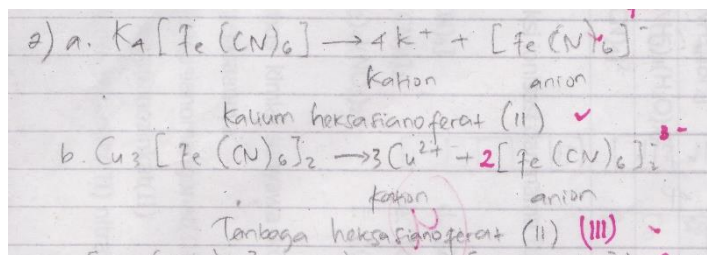 2) a. K4 [Fe (CN)6] → 4 K+ + [Fe (CN)6]-
Kation anion
Kalium heksasianoferat (II) ✓
3-
b. Cu3 [Fe (CN)6]2 → 3 Cu2+ + 2[Fe (CN)6]2-
kation anion
Tembaga heksasianoferat (II) (III)